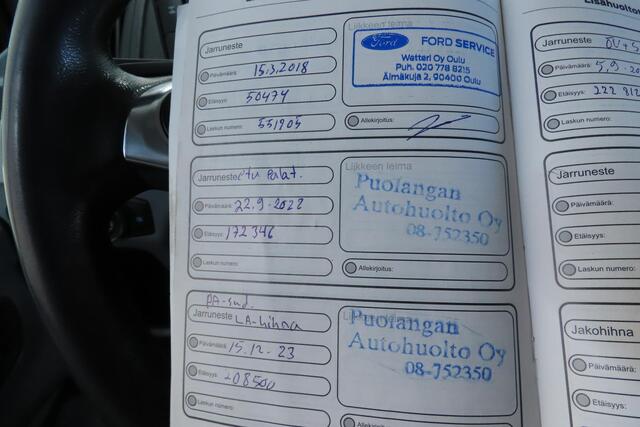 Liikkeen leima
Jarruneste
Päivämäärä: 15.3.2018
Etäisyys: 50474
Laskun numero: 551905
Ford FORD SERVICE
Wetteri Oy Oulu
Puh. 020 778 8215
Älmäkuja 2, 90400 Oulu
Allekirjoitus:
Jarruneste etu palat.
Päivämäärä: 22.9-2022
Etäisyys: 172346
Laskun numero:
Liikkeen leima
Puolangan
Autohuolto Oy
08-752350
Allekirjoitus:
Jarruneste LA-hihna
Päivämäärä: 15.12-23
Etäisyys: 208500
Laskun numero:
Liikkeen leima
Puolangan
Autohuolto Oy
08-752350
Allekirjoitus:
Jarruneste
Päivämäärä:
Etäisyys:
Laskun numero:
Jarruneste
Päivämäärä:
Etäisyys:
Laskun numero:
Jakohihna
Päivämäärä:
Etäisyys:
Laskun numero: